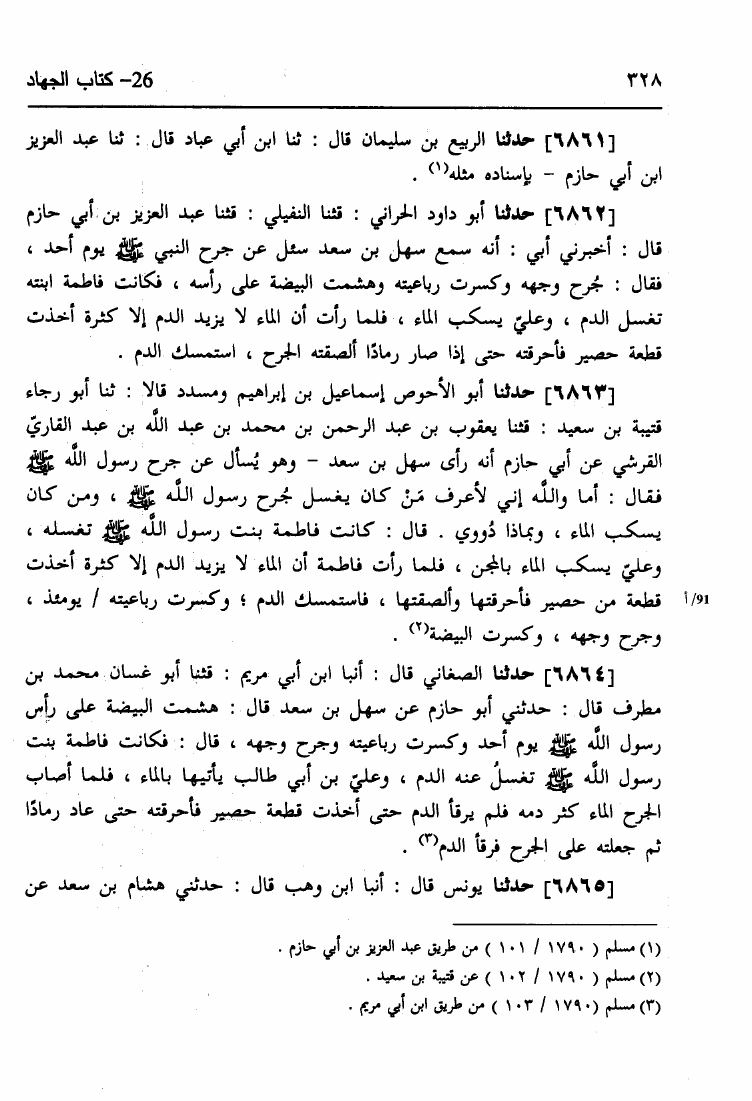 ٣٢٨ 26- كتاب الجهاد
[٦٨٦١] حدثنا الربيع بن سليمان قال : ثنا ابن أبي عباد قال : ثنا عبد العزيز
ابن أبي حازم - بإسناده مثله(١) .
[٦٨٦٢] حدثنا أبو داود الحراني : قثنا النفيلي : قثنا عبد العزيز بن أبي حازم
قال : أخبرني أبي : أنه سمع سهل بن سعد سئل عن جرح النبي ﷺ يوم أحد ،
فقال : جُرح وجهه وكسرت رباعيته وهشمت البيضة على رأسه ، فكانت فاطمة ابنته
تغسل الدم ، وعليّ يسكب الماء ، فلما رأت أن الماء لا يزيد الدم إلا كثرة أخذت
قطعة حصير فأحرقته حتى إذا صار رمادًا ألصقته الجرح ، استمسك الدم .
[٦٨٦٣] حدثنا أبو الأحوص إسماعيل بن إبراهيم ومسدد قالا : ثنا أبو رجاء
قتيبة بن سعيد : قثنا يعقوب بن عبد الرحمن بن محمد بن عبد اللَّه بن عبد القاريّ
القرشي عن أبي حازم أنه رأى سهل بن سعد - وهو يُسأل عن جرح رسول اللَّه ﷺ
فقال : أما واللَّه إني لأعرف مَنْ كان يغسل جُرح رسول اللَّه ﷺ ، ومن كان
يسكب الماء ، وبماذا دُووي . قال : كانت فاطمة بنت رسول اللَّه ﷺ تغسله ،
وعليّ يسكب الماء بالمجن ، فلما رأت فاطمة أن الماء لا يزيد الدم إلا كثرة أخذت
قطعة من حصير فأحرقتها وألصقتها ، فاستمسك الدم ؛ وكسرت رباعيته / يومئذ ، 91/أ
وجرح وجهه ، وكسرت البيضة(٢) .
[٦٨٦٤] حدثنا الصغاني قال : أنبا ابن أبي مريم : قثنا أبو غسان محمد بن
مطرف قال : حدثني أبو حازم عن سهل بن سعد قال : هشمت البيضة على رأس
رسول اللَّه ﷺ يوم أحد وكسرت رباعيته وجرح وجهه ، قال : فكانت فاطمة بنت
رسول اللَّه ﷺ تغسلُ عنه الدم ، وعليّ بن أبي طالب يأتيها بالماء ، فلما أصاب
الجرح الماء كثر دمه فلم يرقأ الدم حتى أخذت قطعة حصير فأحرقته حتى عاد رمادًا
ثم جعلته على الجرح فرقأ الدم(٣) .
[٦٨٦٥] حدثنا يونس قال : أنبا ابن وهب قال : حدثني هشام بن سعد عن
(١) مسلم ( ١٧٩٠ / ١٠١ ) من طريق عبد العزيز بن أبي حازم .
(٢) مسلم ( ١٧٩٠ / ١٠٢ ) عن قتيبة بن سعيد .
(٣) مسلم (١٧٩٠ / ١٠٣ ) من طريق ابن أبي مريم .